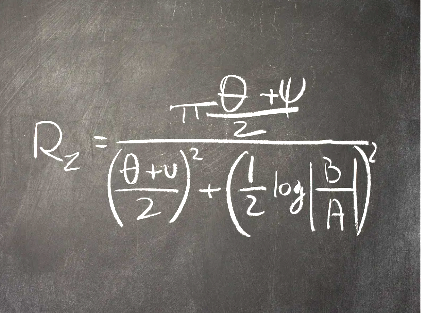 R_z = \frac{\pi \frac{\theta + \psi}{2}}{\left(\frac{\theta + υ}{2}\right)^2 + \left(\frac{1}{2} \log \left|\frac{B}{A}\right|\right)^2}